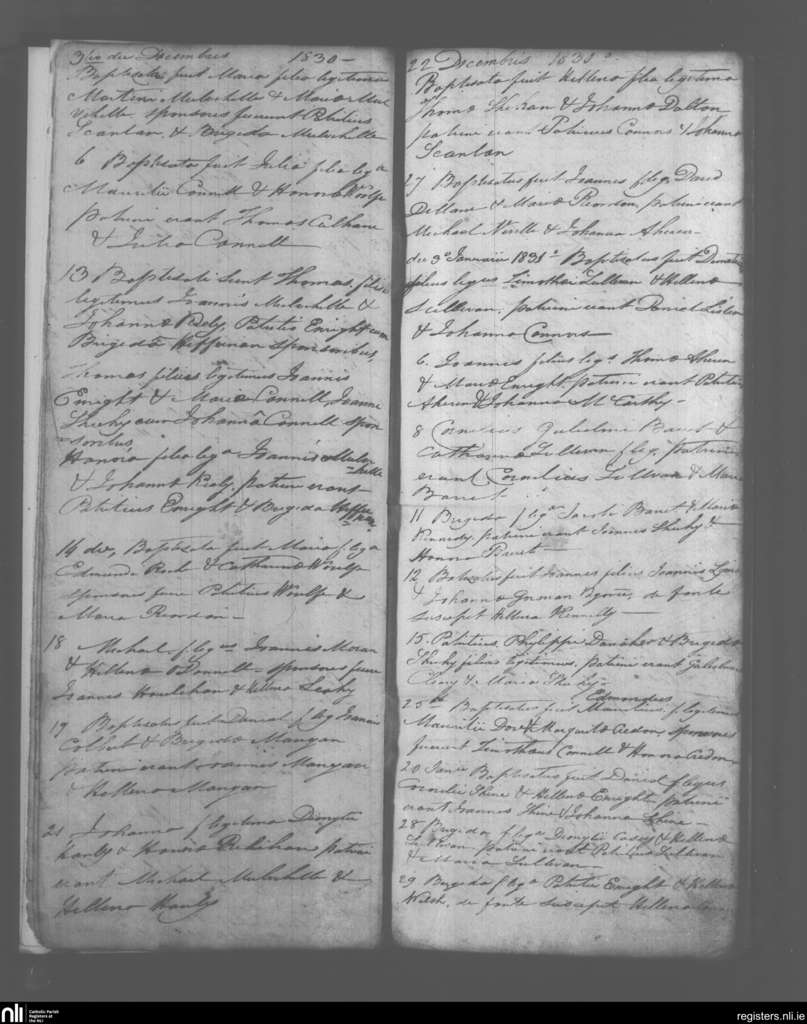 3tio die Decembris 1830 -
Baptisata fuit Maria filia legitima
Martini Mulvihille & Maria Mul
vihille, sponsores fuerunt Patritius
Scanlan, & Brigida Mulvihille
6 Baptisatus fuit Julia filia lega
Mauritii Connell & Honora Woulfe
patrini erant Thomas Culhane
& Julia Connell
13 Baptisati sunt Thomas filius
legitimus Joannis Mulvihille &
Johanna Kiely Patritio Enright cum
Brigida Heffernan sponsoribus
Thomas filius legitimus Joannis
Enright & Maria Connell, Joanne
Sheehy cum Johannâ Connell spon
soribus
Honora filia lega Joannis Mulvi
hille
& Johanna Kiely, patrini erant
Patritius Enright & Brigida Heffer
nan
14 die, Baptisata fuit Maria f lega
Edmundi Roche & Catharina Woulfe
sponsores fuere Patritius Woulfe &
Maria Reordan -
18 Michael f legus Joannis Moran
& Hellena O'Donnell - sponsores fuere
Joannes Hourlehan & Hellena Leahy
19 Baptisatus fuit Daniel f leg Joannis
Colbert & Brigida Mangan
patrini erant Joannes Mangan
& Hellena Mangan
21 Johanna f legitima Dionytii
Hanly & Honora patrini
erant Michael Mulvihille &
Hellena Hanly
22 Decembris 1830
Baptisata fuit Hellena filia legitima
Thoma Sheehan & Johanna Dalton
patrini erant Patricius Connors & Johanna
Scanlan
27 Baptisatus fuit Joannes f leg David
& Maria Reordan, patrini erant
Michael Neville & Johanna Aheren -
die 3o Januarii 1831o Baptisatus fuit
filius legus Timothei Sullivan & Hellena
Sullivan, patrini erant Daniel Liston
& Johanna Connors
6. Joannes filius legs Thoma Aheren
& Maria Enright patrini erant Patritius
Aheren & Johanna McCarthy -
8 Cornelius Gulielmi Barret &
Catharina Sullivan f leg, patrini
erant Cornelius Sullivan & Maria
Barret
11 Brigida f lega Jacobi Barret & Maria
Kennedy, patrini erant Joannes Sheehy &
Honora
12 Batisatus fuit Joannes filius Joannis
& Johanna Gorman de fonte
suscepit Hellena Kennedy
15. Patritius, Philippi Danaher & Brigida
Sheehy filius legitimus, patrini erant
Cleary & Maria
Edmondus
25th Baptisatus fuit Mauritius f legitimus
Mauritii Dore & Margarita Creedon, sponsores
fuerunt Timotheus Connell & Honora Creedon
20 Janii Baptisatus fuit Daniel f legus
Cornelii Shine & Hellena Enright patrini
erant Joannes Shine & Johanna Shine -
28 Brigida f lega Dionytii Casey & Hellena
Sullivan patrini erant Patritius Sullivan
& Maria Sullivan -
29 Brigida f lega Patritii Enright & Hellena
Welsh, de fonte suscepit Hellena
nli
Catholic Parish
Registers at
the NLI
registers.nli.ie